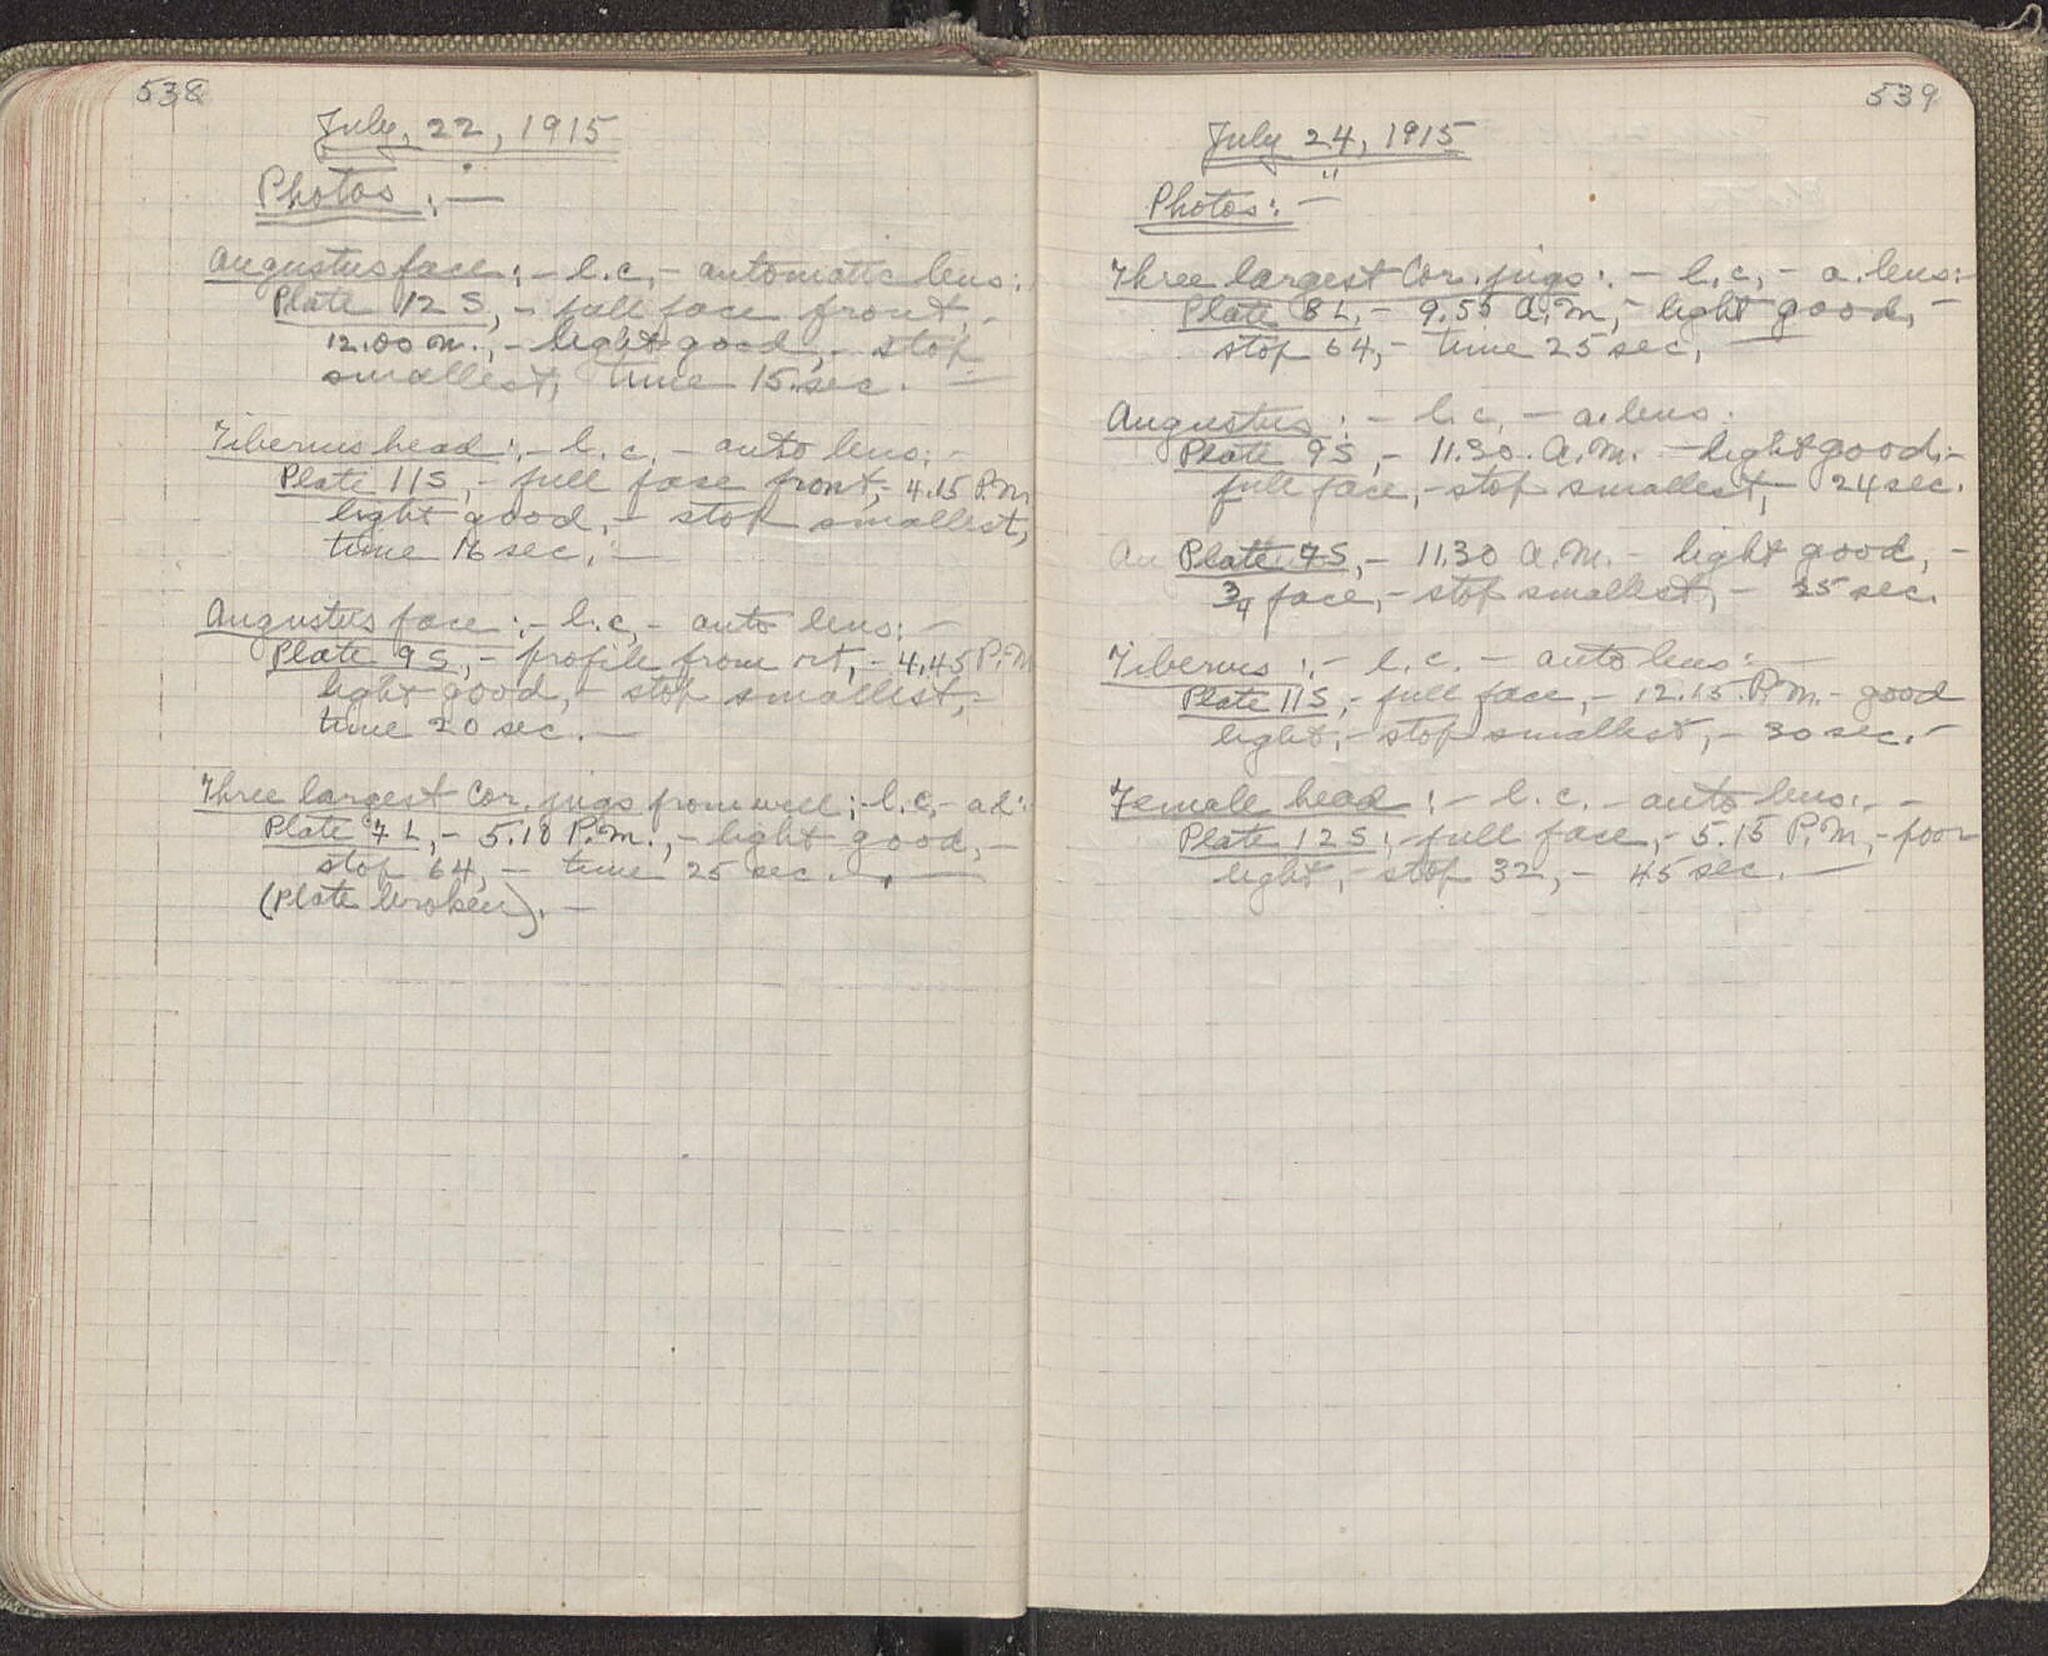 538
July, 22, 1915
Photos:—
Augustus face:- l.c,- automatic lens:
Plate 12 S,- full face front,-
12.00 m.,- light good,- stop
smallest, time 15 sec. —
Tiberius head:- l.c,- auto lens:-
Plate 11S,- full face front,- 4.15 P.M
light good,- stop smallest,
time 16 sec.—
Augustus face:- l.c,- auto lens:-
Plate 9 S,- profile from rt,- 4.45 P.M
light good,- stop smallest,-
time 20 sec.—
Three largest Cor. jugs from well:- l.c,- a l:
Plate 7 L,- 5.10 P.M.,- light good,-
stop 64,- time 25 sec. —
(Plate broken).—
539
July 24, 1915
"
Photos:—
Three largest Cor. jugs:- l.c,- a. lens:-
Plate 8 L,- 9.55 A.M,- light good,-
stop 64,- time 25 sec, —
Augustus:- l.c,- a. lens:
Plate 9S,- 11.30. A.M. - light good,-
full face,- stop smallest,- 24 sec.
An Plate 7S,- 11.30 A.M.- light good,-
3/4 face,- stop smallest,- 25 sec.
Tiberius:- l.c. - auto lens:-
Plate 11S,- full face,- 12.15. P.M.- good
light,- stop smallest,- 30 sec.-
Female head:- l.c. - auto lens:-
Plate 12 S:- full face,- 5.15 P.M,- poor
light,- stop 32,- 45 sec. —